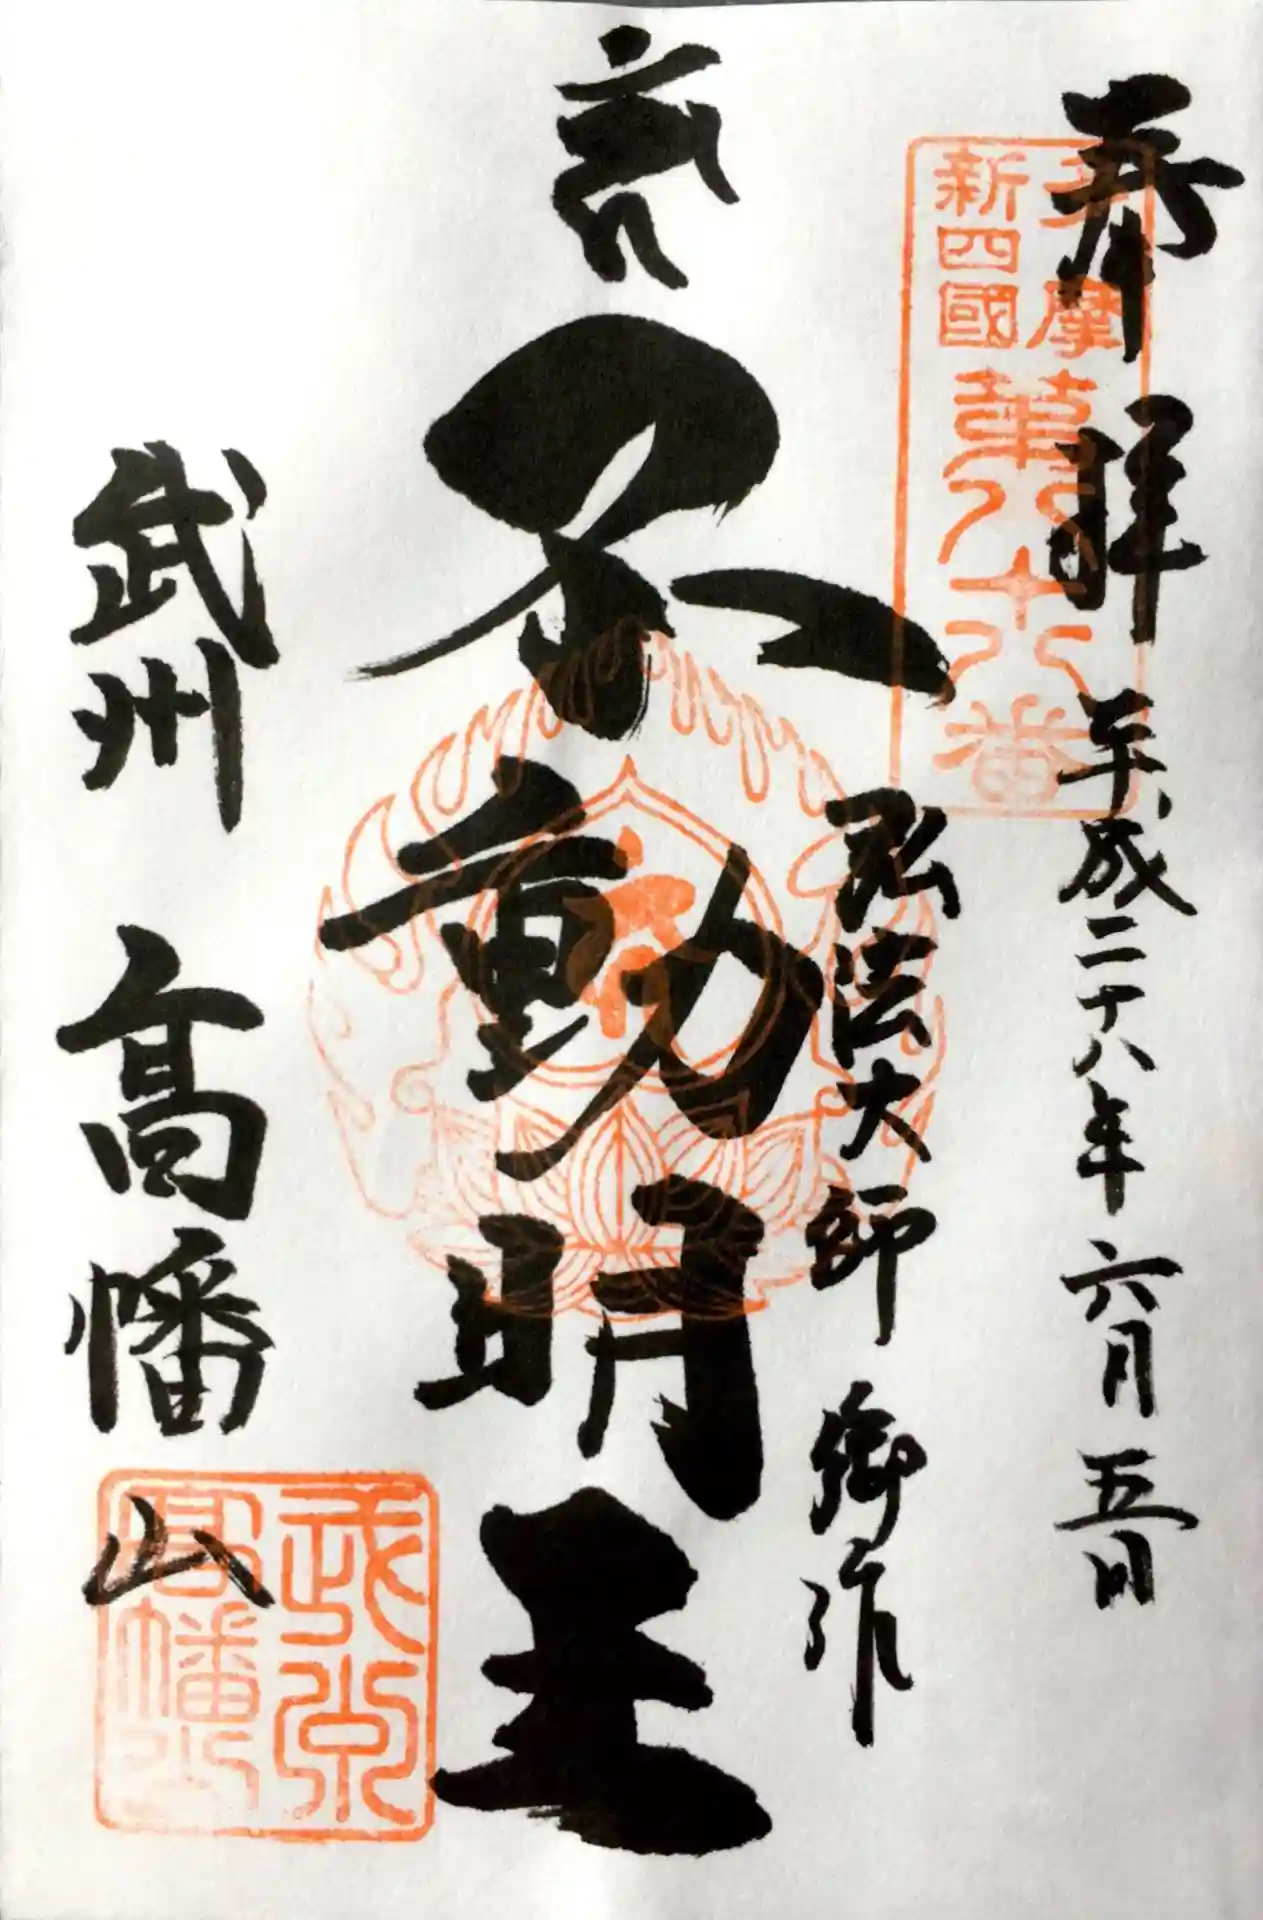 奉拝 平成二十八年六月五日
多摩
新四國
第八十八番
弘法大師御作
不動明王
武州 高幡山
高幡山